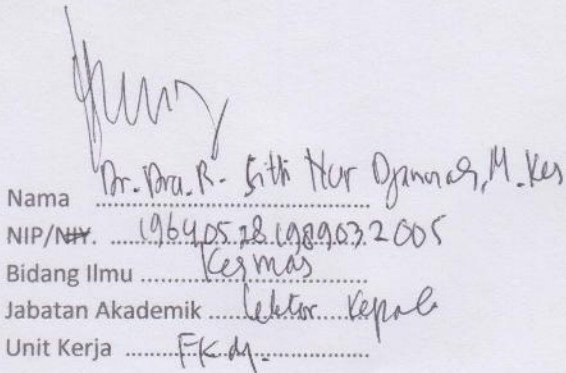 Nama Dr. Dra. R. Sitti Nur Djannah, M.Kes
NIP/NIY. 196405281989032005
Bidang Ilmu Kesmas
Jabatan Akademik Lektor Kepala
Unit Kerja FKM.